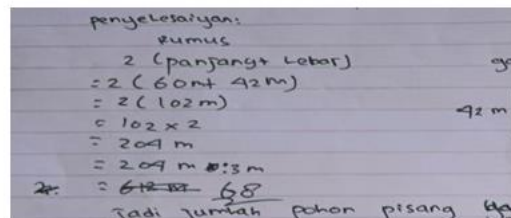 penyelesaiyan:
Rumus
2 (panjang+ Lebar)
= 2 (60m+ 42m)
= 2 (102 m)
= 102 x 2
42 m
= 204 m
= 204 m :3 m
= 612 m 68
Jadi Jumlah pohon pisang